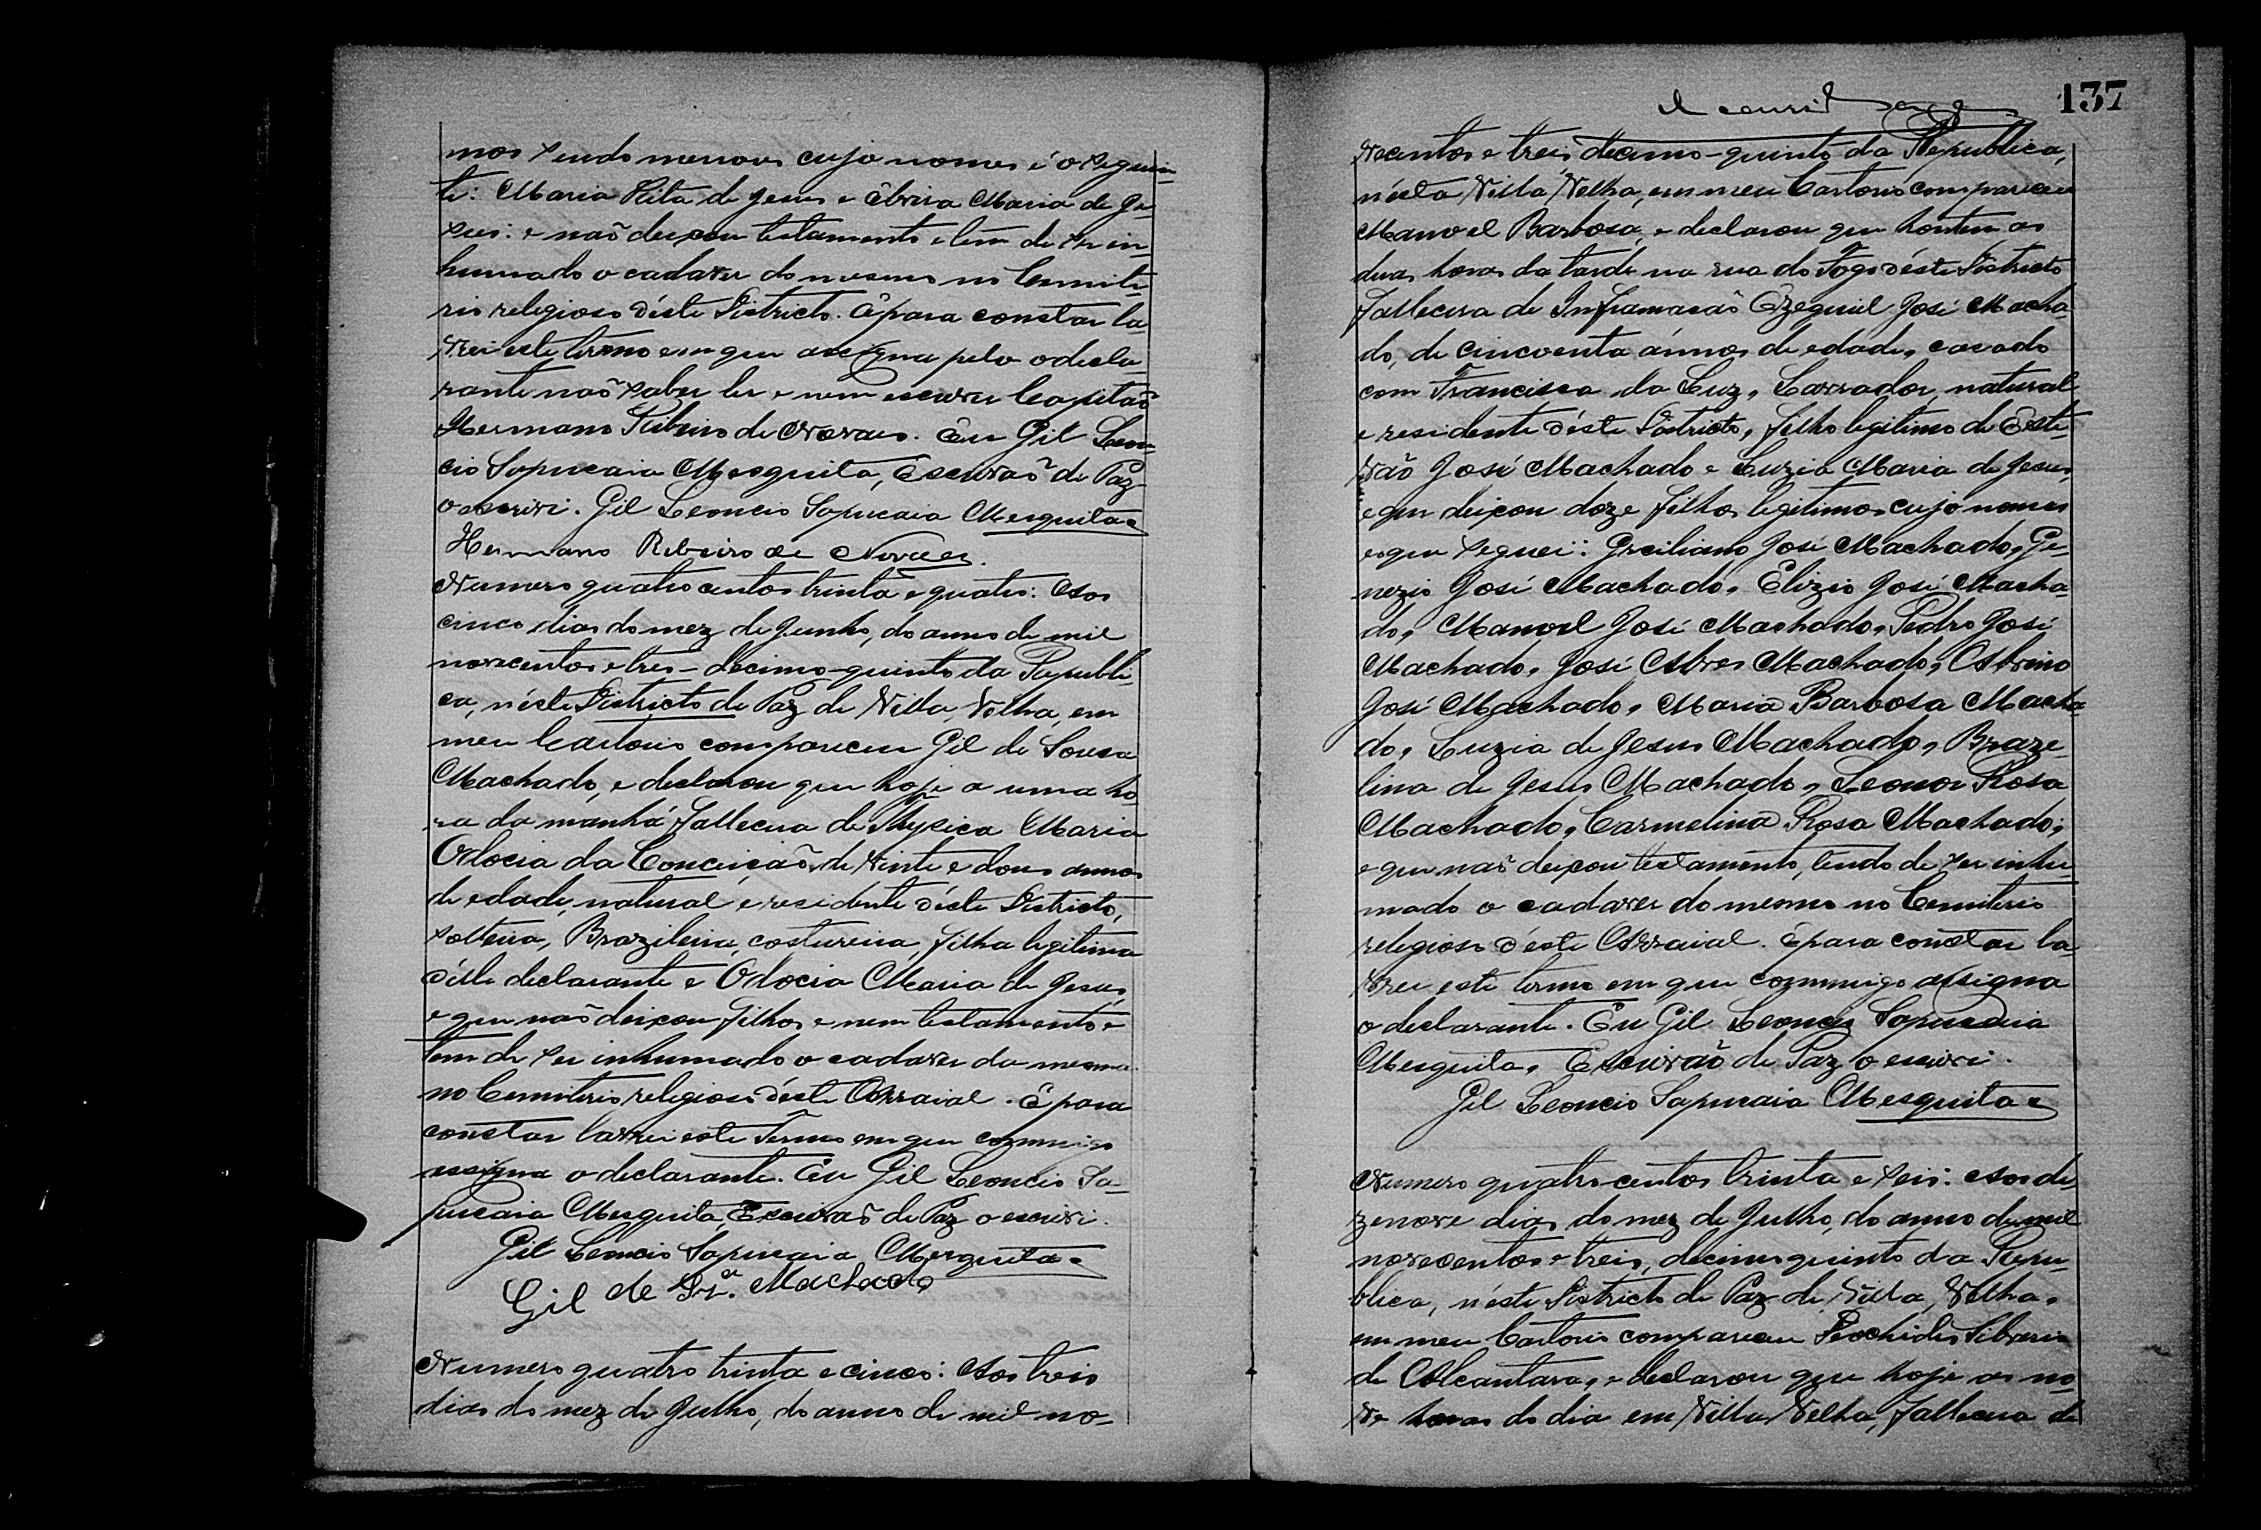 mos sendo menores cujo nomes é o seguin-
te: Maria Rita de Jesus e Elvira Maria de Je-
sus: e não deixou testamento e tem de ser in-
humado o cadaver do mesmo no Cemite-
rio religioso d'éste Districto. E para constar la-
vrei este termo em que assigna pelo o decla-
rante não saber ler e nem escrever Capitão
Hermano Ribeiro de Novaes. Eu Gil Leon-
cio Sapucaia Mesquita, Escrivão de Paz
o escrivi. Gil Leoncio Sapucaia Mesquita
Hermano Ribeiro de Novaes.
Numero quatro centos trinta e quatro: Aos
cinco dias do mez de Junho, do anno de mil
novecentos e tres - decimo - quinto da Republi-
ca, n'éste Districto de Paz de Villa Velha, em
meu Cartorio compareceu Gil de Sousa
Machado, e declarou que hoje a uma ho-
ra da manhá fallecera de Thysica Maria
Odocia da Conceição, de vinte e dous annos
de edade, natural e residente d'éste Districto,
solteira, Brazileira, costureira, filha legitima
d'éste declarante e Odocia Maria de Jesus,
e que não deixou filhos e nem testamento e
tem de ser inhumado o cadaver da mesma
no Cemiterio religioso d'éste Arraial. E para
constar lavrei este Termo em que commigo
assigna o declarante. Eu Gil Leoncio Sa-
pucaia Mesquita, Escrivão de Paz o escrivi.
Gil Leoncio Sapucaia Mesquita
Gil de Sz.ª Machado
Numero quatro trinta e cinco: Aos treis
dias do mez de Julho, do anno de mil no-
137
vecentos e treis decimo - quinto da Republica,
n'ésta Villa Velha, em meu Cartorio compareceu
Manoel Barbosa, e declarou que hontem as
duas horas da tarde na rua do Fogo d'éste Districto
fallecera de Inframação Ezequiel José Macha-
do, de cincoenta ánnos de edade, casado
com Francisca da Luz, Lavrador, natural
e residente d'éste Districto, filho legitimo de Este-
vão José Machado e Luzia Maria de Jesus,
e que deixou doze filhos legitimos cujo nomes
e o que segue: Greciliano José Machado, Ge-
nezio José Machado, Elizio José Macha-
do, Manoel José Machado, Pedro José
Machado, José Alves Machado, Albino
José Machado, Maria Barbosa Macha-
do, Luzia de Jesus Machado, Braze-
lina de Jesus Machado, Leonor Rosa
Machado, Carmelina Rosa Machado;
e que não deixou testamento, tendo de ser inhu-
mado o cadaver do mesmo no Cemiterio
religioso d'éste Arraial. E para constar la-
vrei este termo em que commigo assigna
o declarante. Eu Gil Leoncio Sapucaia
Mesquita, Escrivão de Paz o escrivi.
Gil Leoncio Sapucaia Mesquita
Numero quatro centos trinta e seis: Aos de-
zenove dias do mez de Julho, do anno de mil
novecentos e treis, decimo quinto da Repu-
blica, n'éste Districto de Paz de Villa Velha,
em meu Cartorio compareceu
de Alcantara, e declarou que hoje as no-
ve horas do dia em Villa Velha, fallecera de